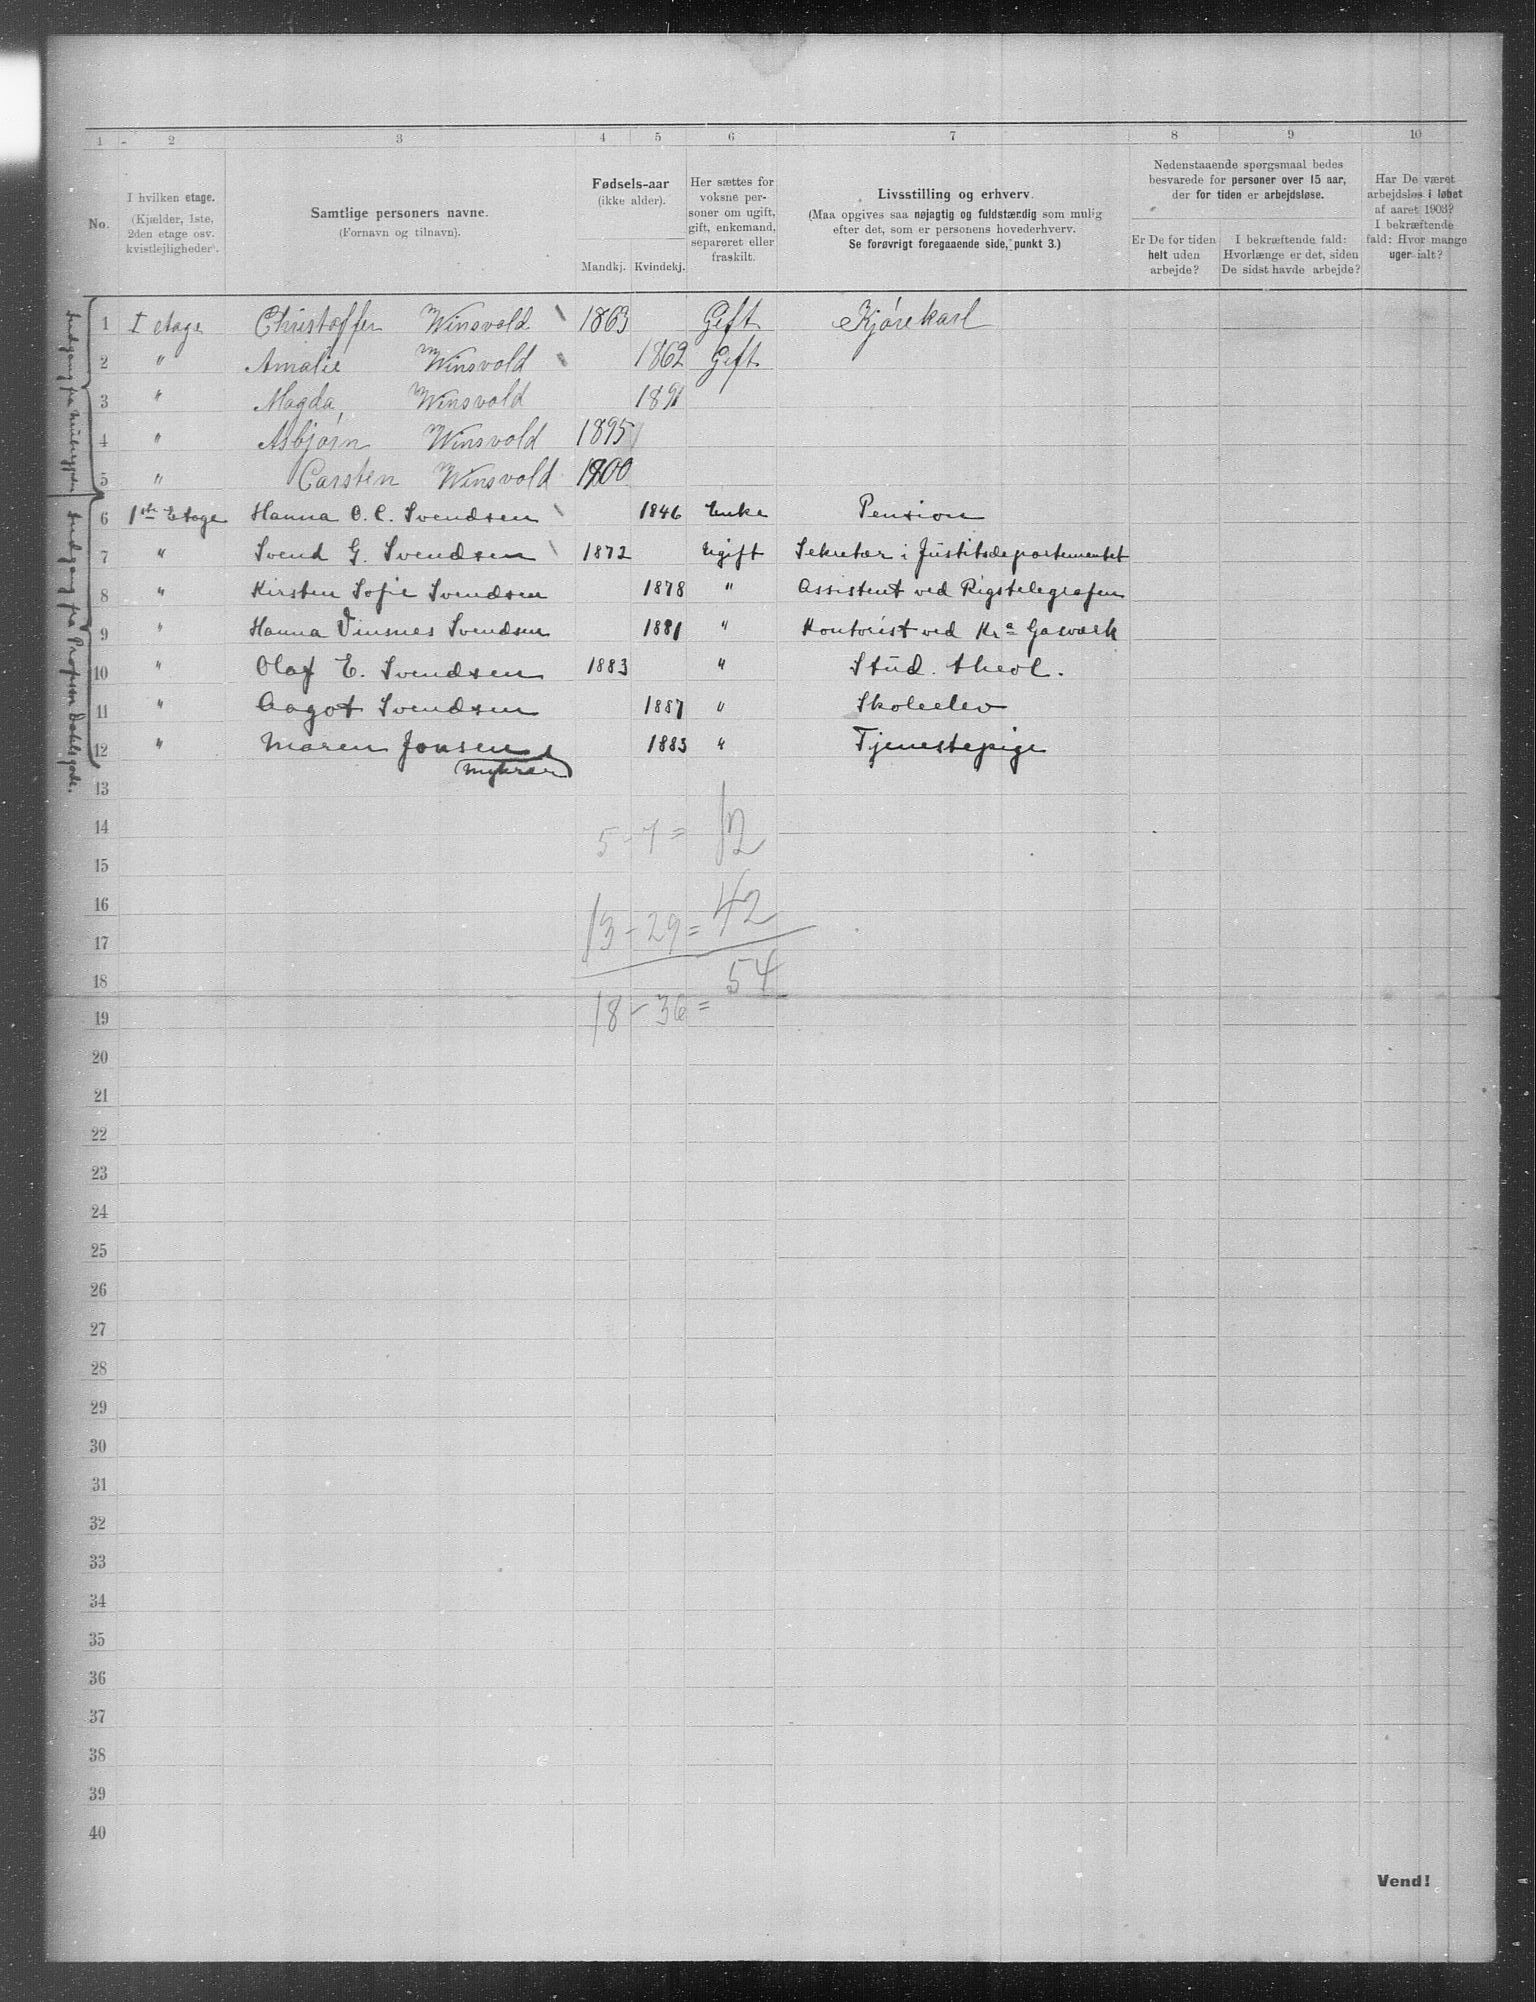 1 2 3 4 5 6 7 8 9 10
No.
I hvilken etage.
(Kjælder, 1ste,
2den etage osv.
kvistlejligheder).
Samtlige personers navne.
(Fornavn og tilnavn).
Fødsels-aar
(ikke alder).
Mandkj. Kvindekj.
Her sættes for
voksne per-
soner om ugift,
gift, enkemand,
separeret eller
fraskilt.
Livsstilling og erhverv.
(Maa opgives saa nøjagtig og fuldstærdig som mulig
efter det, som er personens hovederhverv.
Se forøvrigt foregaaende side, punkt 3.)
Nedenstaaende spørgsmaal bedes
besvarede for personer over 15 aar,
der for tiden er arbejdsløse.
Er De for tiden
helt uden
arbejde?
I bekræftende fald:
Hvorlænge er det, siden
De sidst havde arbejde?
Har De været
arbejdsløs i løbet
af aaret 1903?
I bekræftende
fald: Hvor mange
uger ialt?
Indgang fra
Indgang fra Professor Dahls gade.
1 I etage Christoffer Winsvold 1863 Gift Kjørekarl
2 " Amalie Winsvold 1862 Gift
3 " Magda, Winsvold 1891
4 " Asbjørn Winsvold 1895
5 " Carsten Winsvold 1900
6 1ste Etage Hanna O. C. Svendsen 1846 Enke Pension
7 " Svend G. Svendsen 1872 Ugift Sekretær i Justitsdepartementet
8 " Kirsten Sofie Svendsen 1878 " Assistent ved Rigstelegrafen
9 " Hanna Vinsnes Svendsen 1881 " Kontorist ved Kra Gasværk
10 " Olaf E. Svendsen 1883 " Stud. theol.
11 " Aagot Svendsen 1887 " Skoleelev
12 " Maren Jonsen 1883 " Tjenestepige
Myhrer
13
14 5 - 7 = 12
15
16
17 13 - 29 = 42
18 54
19 18 - 36 =
20
21
22
23
24
25
26
27
28
29
30
31
32
33
34
35
36
37
38
39
40
Vend!